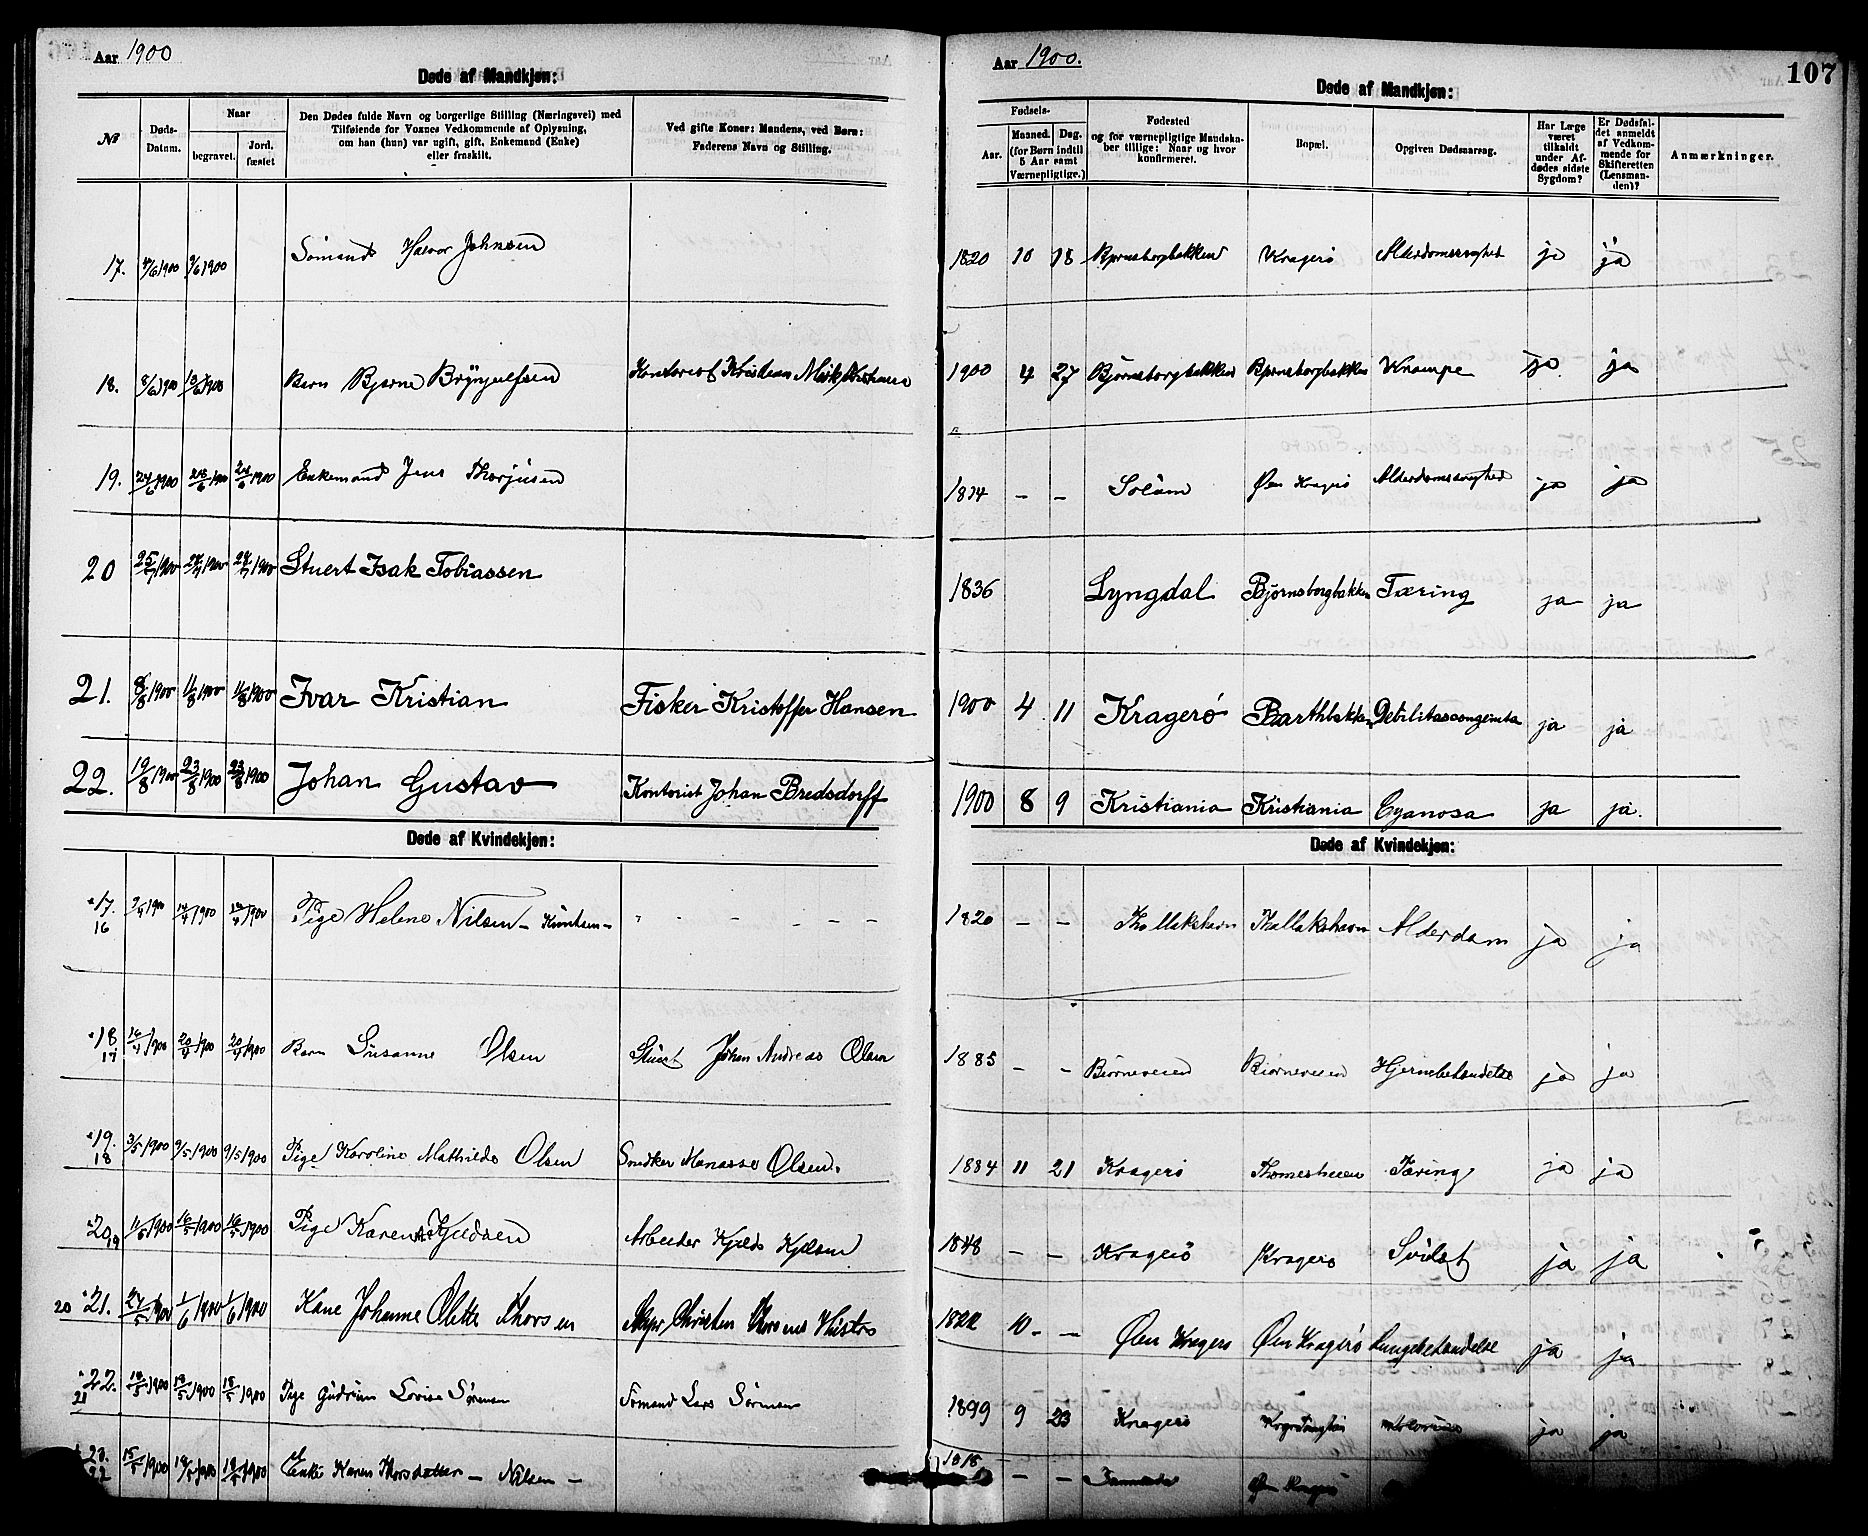 Aar 1900
Døde af Mandkjøn:
№
Døds-Datum.
Naar
begravet.
Jord. fæstet
Den Dødes fulde Navn og borgerlige Stilling (Næringsvei) med
Tilføiende for Voxnes Vedkommende af Oplysning,
om han (hun) var ugift, gift, Enkemand (Enke)
eller fraskilt.
Ved gifte Koner: Mandens, ved Børn:
Faderens Navn og Stilling.
17. 4/6 1900 9/6 1900 Sømand Halvor Johnsen
18. 8/6 1900 13/6 1900 Barn Bjarne Brynjulfsen Kristian
19. 24/6 1900 28/6 1900 Enkemand Jens Thorjusen
20 25/7 1900 1900 1900 Stuert Isak Tobiassen
21. 8/8 1900 11/8 1900 11/8 1900 Ivar Kristian Fisker Kristoffer Hansen
22. 19/8 1900 23/8 1900 23/8 1900 Johan Gustav Kontorist Johan Bredsdorff
Døde af Kvindekjøn:
17. 16 1900 14/4 1900 14/4 1900 Pige Helene Nilsen – Knutsen –
18 17 16/4 1900 20/4 1900 20/4 1900 Barn Susanne Olsen Stuert Johan Andreas Olsen
19. 18 3/5 1900 9/5 1900 9/5 1900 Pige Karoline Mathilde Olsen Snedker Manasse Olsen.
20 19 11/5 1900 16/5 1900 16/5 1900 Pige Karen Arbeider
20 21. 27/5 1900 1/6 1900 1/6 1900 Kone Johanne Olette Thorsen
22. 21 1900 18/5 1900 18/5 1900 Pige Gudrun Lovise Sørensen Sømand Lars Sørensen
23. 22 15/5 1900 19/5 1900 19/5 1900 Enke Karen Thorsdatter – Nilsen –
Aar 1900.
107
Døde af Mandkjøn:
Fødsels-
Aar.
Maaned. Dag.
(for Børn indtil
5 Aar samt
Værnepligtige.)
Fødested
og for værnepligtige Mandska-
ber tillige: Naar og hvor
konfirmeret.
Bopæl.
Opgiven Dødsaarsag.
Har Læge
været
tilkaldt
under Af-
dødes sidste
Sygdom?
Er Dødsfal-
det anmeldt
af Vedkom-
mende for
Skifteretten
(Lensman-
den)?
Anmærkninger.
1820 10 18 Bjørnsborgbakken Kragerø Alderdomssvaghed ja ja
1900 4 27 Bjørnsborgbakken Bjørnsborgbakken Krampe ja ja
1814 – – Solum Øen Kragerø Alderdomssvaghed ja ja
1836 Lyngdal Bjørnsborgbakken Tæring ja ja
1900 4 11 Kragerø Barthbakken Debilitas congenita ja ja
1900 8 9 Kristiania Kristiania Cyanosa ja ja.
Døde af Kvindekjøn:
1820 – – Thallakshavn Thallakshavn Alderdom ja ja
1885 – – Biørneveien Biørneveien Hjernebetændelse ja ja
1884 11 21 Kragerø Thomesheien Tæring ja ja
1848 – – Kragerø Kragerø ja ja
1822 10 – – Øen Kragerø Øen Kragerø Lungebetændelse ja ja
1899 9 23 Kragerø ja ja
1818 – – Øen Kragerø